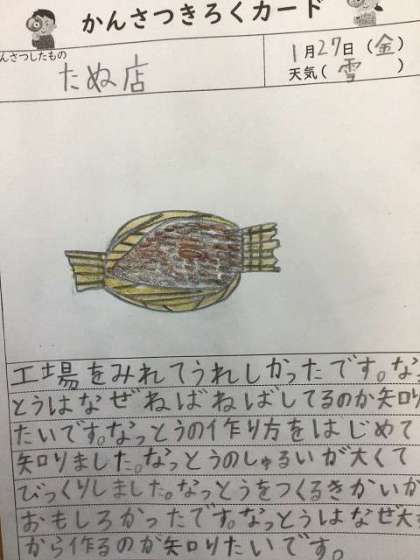 かんさつきろくカード
んさつしたもの
たぬ店
1月27日(金)
天気(雪)
工場をみれてうれしかったです。なっ
とうはなぜねばねばしてるのか知り
たいです。なっとうの作り方をはじめて
知りました。なっとうのしゅるいが大くて
びっくりしました。なっとうをつくるきかいが
おもしろかったです。なっとうはなぜ大
から作るのか知りたいです。